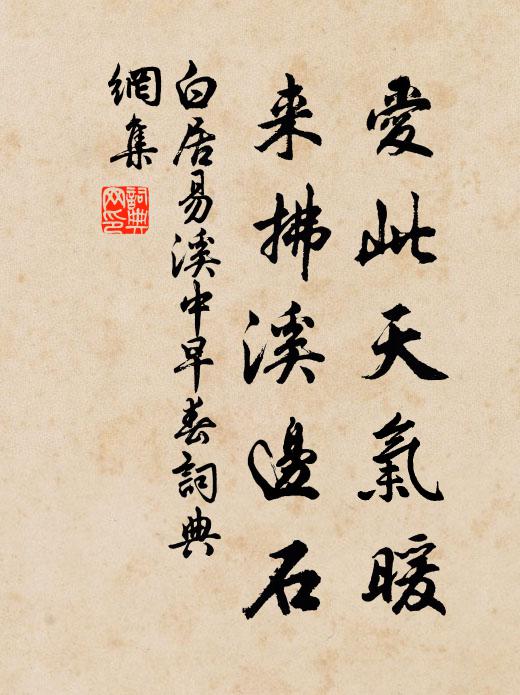 愛此天氣暖
来拂溪邊石
白居易溪中早春詞典
網集
詞典
網印